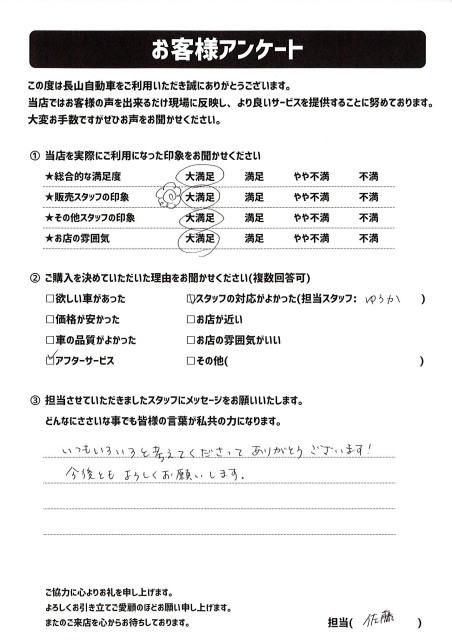 お客様アンケート
この度は長山自動車をご利用いただき誠にありがとうございます。
当店ではお客様の声を出来るだけ現場に反映し、より良いサービスを提供することに努めております。
大変お手数ですがぜひお声をお聞かせください。
① 当店を実際にご利用になった印象をお聞かせください
★総合的な満足度 大満足 満足 やや不満 不満
★販売スタッフの印象 大満足 満足 やや不満 不満
★その他スタッフの印象 大満足 満足 やや不満 不満
★お店の雰囲気 大満足 満足 やや不満 不満
② ご購入を決めていただいた理由をお聞かせください(複数回答可)
□欲しい車があった ☑スタッフの対応がよかった(担当スタッフ: ゆうか )
□価格が安かった □お店が近い
□車の品質がよかった □お店の雰囲気がいい
☑アフターサービス □その他( )
③ 担当させていただきましたスタッフにメッセージをお願いいたします。
どんなにささいな事でも皆様の言葉が私共の力になります。
いつもいろいろと考えてくださって ありがとうございます!
今後とも よろしくお願いします。
ご協力に心よりお礼を申し上げます。
よろしくお引き立てご愛顧のほどお願い申し上げます。
またのご来店を心からお待ちしております。
担当( 佐藤 )